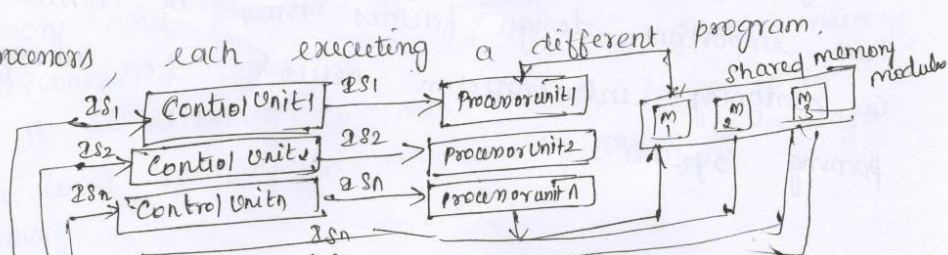 each executing a different program.
shared memory
modules
IS1 Control Unit1 IS1 Processorunit1 m1 m2 m3
IS2 Control Unit2 IS2 Processorunit2
ISn Control Unitn ISn Processorunitn
ISn